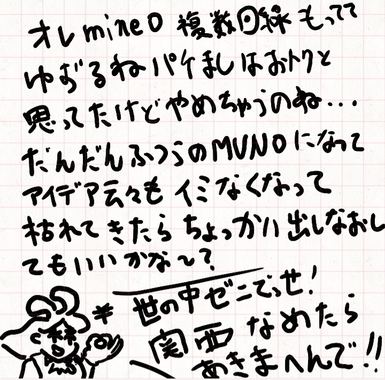 オレmineo 複数回線もってて
ゆずるねパケましはおトクと
思ってたけどやめちゃうのね・・・
だんだんふつうのMVNOになって
アイデア云々もイミなくなって
枯れてきたらちょっかい出しなおし
てもいいかな〜?
世の中ゼニでっせ!
関西なめたら
あきまへんで!!